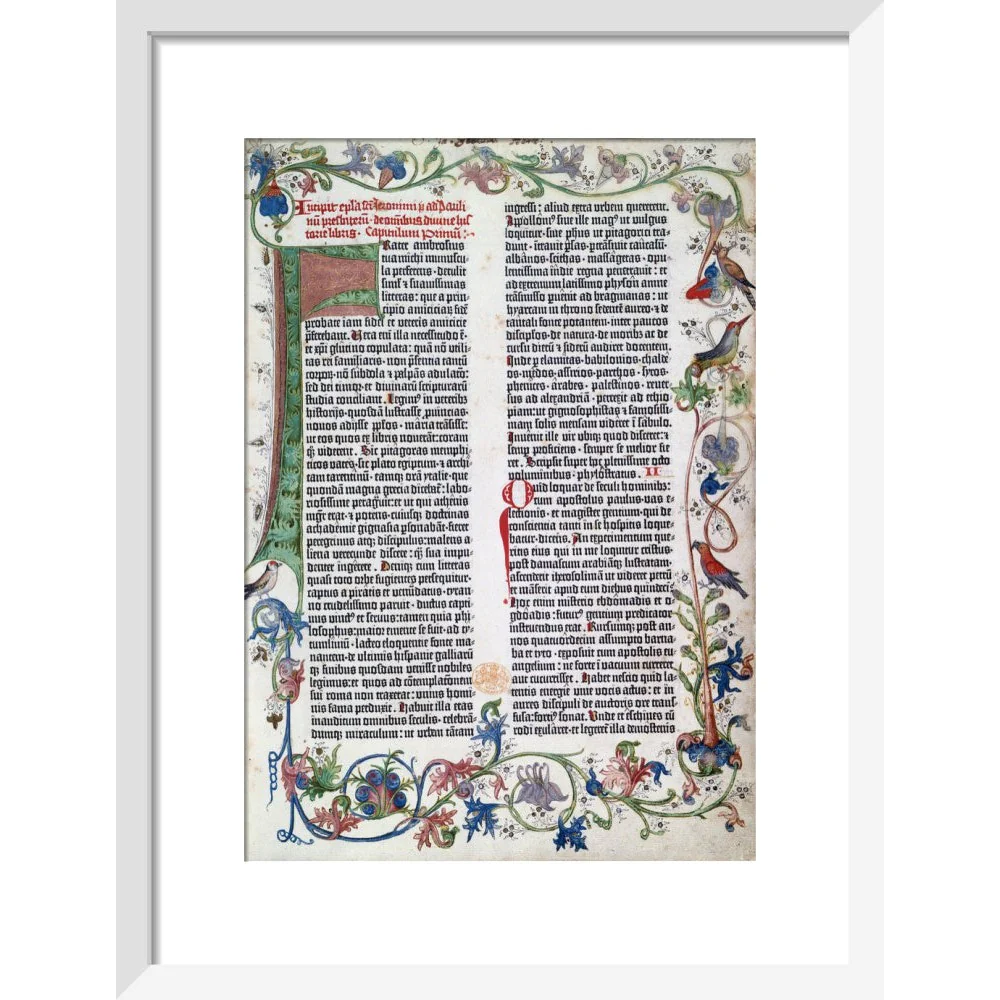 Incipit epl̃a sc̃ti Jeronimi p̃ ad Pauli
nũ presbiterũ · de omnibus diuine his
torie libris · Capitulum Primũ :
Frater ambrosius
tua michi munuscu
la perferens · detulit
simł et suauissimas
litteras : que a prin⸗
cipio amiciciaȝ · fidẽ
probate iam fidei et veteris amicicie
p̃ferebant . Vera eni illa necessitudo ẽ ·
et xp̃i glutino copulata : quam nõ vtili⸗
tas rei familiaris · non p̃sentia tantũ
corpoꝝ · nõ subdola ⁊ palpãs adulatõ :
sed dei timor · et diuinaꝝ scripturarũ
studia conciliant . Legim⁹ in veterib⁹
historijs · quosdã lustrasse ꝓuincias ·
nouos adijsse ꝓłos · maria trãsisse :
ut eos quos ex libris nouerãt : coram
qꝫ viderent . Sic pitagoras memphi⸗
ticos vates · sic plato egiptum · ⁊ archi⸗
tam tarentinũ · eamqꝫ orã ytalie · que
quondã magna grecia dicebat̃ : labo⸗
riosissime peragrauit : et ut qui athenis
mgr̃ erat · ⁊ potens · cuiusqꝫ doctrinas
achademie gignasia ꝓsonabãt · fieret
peregrinus atqꝫ discipulus : malens a⸗
liena verecunde discere : qꝫ sua impu⸗
denter ingerere . Deniqꝫ cum litteras
quasi toto orbe fugientes persequitur ·
captus a piratis et venũdatus · tyran⸗
no crudelissimo paruit · ductus capti⸗
uus vinct⁹ et seruus : tamen quia phi⸗
losophus : maior emente se fuit · ad ty⸗
tumliuiũ · lacteo eloquentie fonte ma⸗
nantem · de vltimis hispanie galliarũ
qꝫ finibus quosdam venisse nobiles
legimus : et quos ad cõtemplacionem
sui roma non traxerat : vnius homi⸗
nis fama perduxit . Habuit illa etas
inauditum omnibus seculis · celebrã⸗
dumqꝫ miraculum : ut vrbem tãtam
ingressi : aliud extra vrbem quererent .
Appolloni⁹ siue ille mag⁹ ut vulgus
loquitur · siue ph̃us ut pitagorici tra⸗
dunt · ĩtrauit ꝑsas · ptrãsiuit caucasũ ·
albãnos · scithas · massagetas · opu⸗
lentissima indie regna penetrauit : et
ad extremum latissimo physon amne
trãsmisso puenit ad bragmanas : ut
hyarcam in throno sedentẽ aureo · ⁊ de
tantali fonte potantem · inter paucos
discip̃los · de natura · de morib⁹ ac de
cursu dierũ ⁊ siderũ audiret docentem .
Inde p̃ elamitas · babilonios · chalde⸗
os · medos · assirios · parthos · syros ·
phenices · arabes · palestinos · reuer⸗
sus ad alexandriã · perrexit ad ethio⸗
piam : ut gignosophistas ⁊ famosissi⸗
mam solis mensam videret ĩ sabulo .
Inuenit ille vir vbiqꝫ quod disceret : ⁊
semp proficiens · semper se melior fie⸗
ret . Scripsit super hoc plenissime octo
voluminibus · phylostratus . II
Quid loquar de seculi hominib⁹ :
cum apostolus paulus · vas e⸗
lectionis · et magister gentium · qui de
conscientia tanti in se hospitis loque⸗
batur · diceris . An experimentum que⸗
ritis eius qui in me loquitur cristus .
post damascum arabiãqꝫ lustratam ·
ascenderit iherosolimã ut videret petrũ
et mãserit apud eum diebus quindeci .
Hoc enim misterio ebdomadis et o⸗
gdoadis : futur⁹ gentium predicator
instruendus erat . Rursumqꝫ post an⸗
nos quatuordecim assumpto barna⸗
ba et tyto · exposuit cum apostolis eu⸗
angelium : ne forte ĩ vacuum curreret
aut cucurrisset . Habet nescio quid la⸗
tentis energie viue vocis actus : et in
aures discipuli de auctoris ore trans⸗
fusa : forti⁹ sonat . Unde et eschines cũ
rodi exularet · et legeret̃ illa demostenis